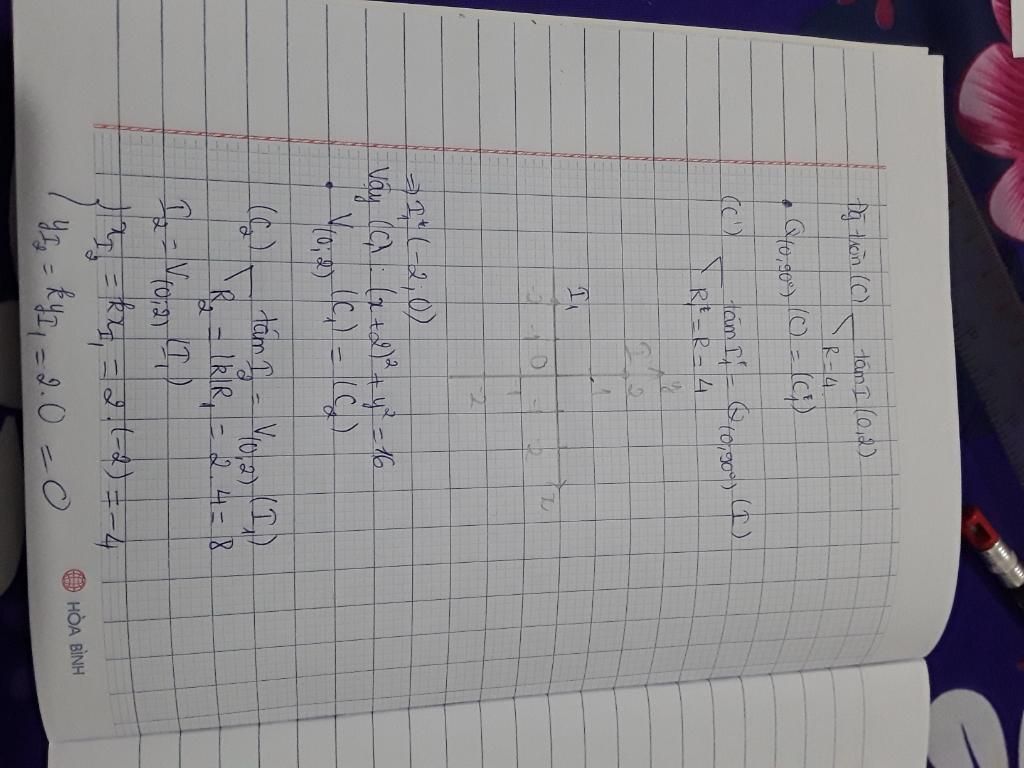 Đg tròn (C) < tâm I (0,2)
R = 4
• Q(0,90°) (C) = (C₁)
(C') < tâm I₁ = Q(0,90°) (I)
R₁ = R = 4
y
I 2
1
I₁ -2 -1 0 1 2 x
-1
-2
=> I₁ (-2,0)
Vậy (C₁): (x+2)² + y² = 16
• V(0,2) (C₁) = (C₂)
(C₂) < tâm I₂ = V(0,2) (I₁)
R₂ = |k|R₁ = 2.4 = 8
I₂ = V(0,2) (I₁)
{ x_I₂ = kx_I₁ = 2.(-2) = -4
y_I₂ = ky_I₁ = 2.0 = 0
HÒA BÌNH